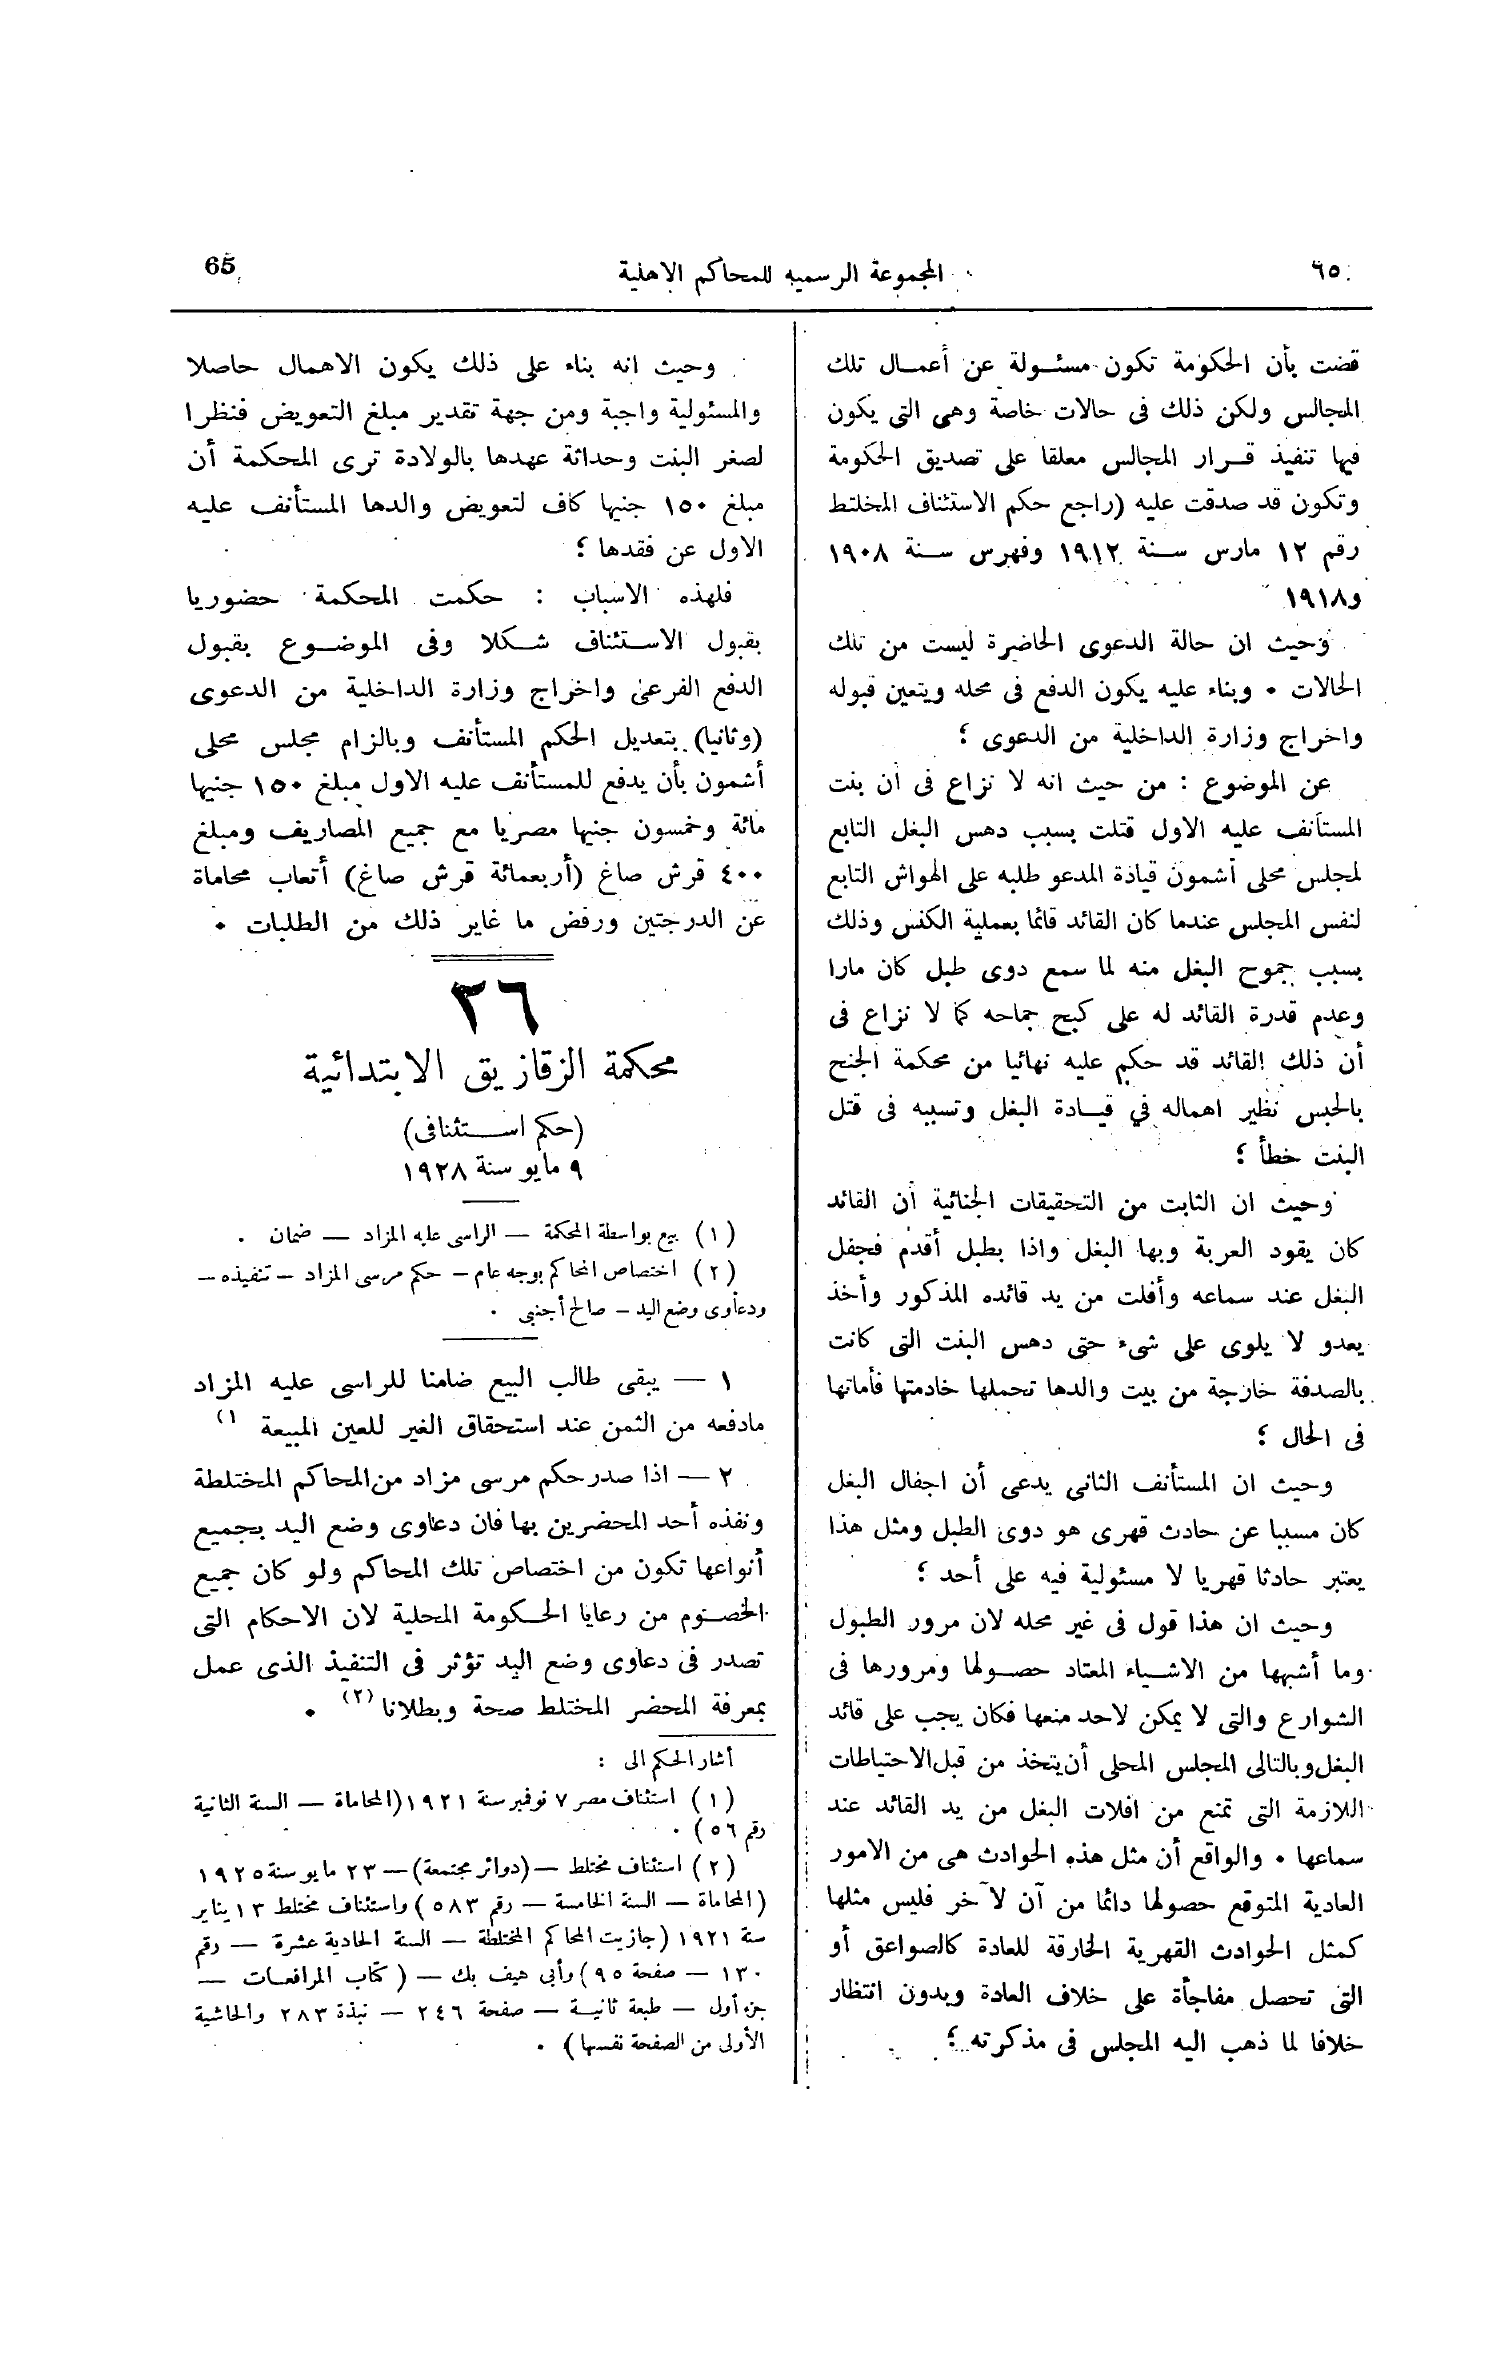 ٦٥
المجموعة الرسميه للمحاكم الاهلية
65
قضت بأن الحكومة تكون مسئولة عن أعمال تلك
المجالس ولكن ذلك فى حالات خاصة وهى التى يكون
فيها تنفيذ قرار المجالس معلقا على تصديق الحكومة
وتكون قد صدقت عليه (راجع حكم الاستئناف المختلط
رقم ١٢ مارس سنة ١٩١٢ وفهرس سنة ١٩٠٨
و١٩١٨
وحيث ان حالة الدعوى الحاضرة ليست من تلك
الحالات • وبناء عليه يكون الدفع فى محله ويتعين قبوله
واخراج وزارة الداخلية من الدعوى ؛
عن الموضوع : من حيث انه لا نزاع فى أن بنت
المستأنف عليه الاول قتلت بسبب دهس البغل التابع
لمجلس محلى أشمون قيادة المدعو طلبه على الهواش التابع
لنفس المجلس عندما كان القائد قائما بعملية الكنس وذلك
بسبب جموح البغل منه لما سمع دوى طبل كان مارا
وعدم قدرة القائد له على كبح جماحه كما لا نزاع فى
أن ذلك القائد قد حكم عليه نهائيا من محكمة الجنح
بالحبس نظير اهماله في قيادة البغل وتسببه فى قتل
البنت خطأ ؛
وحيث ان الثابت من التحقيقات الجنائية أن القائد
كان يقود العربة وبها البغل واذا بطبل أقدم فجفل
البغل عند سماعه وأفلت من يد قائده المذكور وأخذ
يعدو لا يلوى على شىء حتى دهس البنت التى كانت
بالصدفة خارجة من بيت والدها تحملها خادمتها فأماتها
فى الحال ؛
وحيث ان المستأنف الثانى يدعى أن اجفال البغل
كان مسببا عن حادث قهرى هو دوى الطبل ومثل هذا
يعتبر حادثا قهريا لا مسئولية فيه على أحد ؛
وحيث ان هذا قول فى غير محله لان مرور الطبول
وما أشبهها من الاشياء المعتاد حصولها ومرورها فى
الشوارع والتى لا يمكن لاحد منعها فكان يجب على قائد
البغل وبالتالى المجلس المحلى أن يتخذ من قبل الاحتياطات
اللازمة التى تمنع من افلات البغل من يد القائد عند
سماعها • والواقع أن مثل هذه الحوادث هى من الامور
العادية المتوقع حصولها دائما من آن لآخر فليس مثلها
كمثل الحوادث القهرية الخارقة للعادة كالصواعق أو
التى تحصل مفاجأة على خلاف العادة وبدون انتظار
خلافا لما ذهب اليه المجلس فى مذكرته ؛
وحيث انه بناء على ذلك يكون الاهمال حاصلا
والمسئولية واجبة ومن جهة تقدير مبلغ التعويض فنظرا
لصغر البنت وحداثة عهدها بالولادة ترى المحكمة أن
مبلغ ١٥٠ جنيها كاف لتعويض والدها المستأنف عليه
الاول عن فقدها ؛
فلهذه الاسباب : حكمت المحكمة حضوريا
بقبول الاستئناف شكلا وفى الموضوع بقبول
الدفع الفرعى واخراج وزارة الداخلية من الدعوى
(وثانيا) بتعديل الحكم المستأنف وبالزام مجلس محلى
أشمون بأن يدفع للمستأنف عليه الاول مبلغ ١٥٠ جنيها
مائة وخمسون جنيها مصريا مع جميع المصاريف ومبلغ
٤٠٠ قرش صاغ (أربعمائة قرش صاغ) أتعاب محاماة
عن الدرجتين ورفض ما غاير ذلك من الطلبات •
٣٦
محكمة الزقازيق الابتدائية
(حكم استئنافى)
٩ مايو سنة ١٩٢٨
(١) بيع بواسطة المحكمة — الراسى عليه المزاد — ضمان .
(٢) اختصاص المحاكم بوجه عام — حكم مرسى المزاد — تنفيذه —
ودعاوى وضع اليد — صالح أجنبى .
١ — يبقى طالب البيع ضامنا للراسى عليه المزاد
مادفعه من الثمن عند استحقاق الغير للعين المبيعة (١)
٢ — اذا صدر حكم مرسى مزاد من المحاكم المختلطة
ونفذه أحد المحضرين بها فان دعاوى وضع اليد بجميع
أنواعها تكون من اختصاص تلك المحاكم ولو كان جميع
الخصوم من رعايا الحكومة المحلية لان الاحكام التى
تصدر فى دعاوى وضع اليد تؤثر فى التنفيذ الذى عمل
بمعرفة المحضر المختلط صحة وبطلانا (٢) •
أشار الحكم الى :
(١) استئناف مصر ٧ نوفمبر سنة ١٩٢١ (المحاماة — السنة الثانية
رقم ٥٦) .
(٢) استئناف مختلط — (دوائر مجتمعة) — ٢٣ مايو سنة ١٩٢٥
(المحاماة — السنة الخامسة — رقم ٥٨٣) واستئناف مختلط ١٣ يناير
سنة ١٩٢١ (جازيت المحاكم المختلطة — السنة الحادية عشرة — رقم
١٣٠ — صفحة ٩٥) وأبى هيف بك — (كتاب المرافعات —
جزء أول — طبعة ثانية — صفحة ٢٤٦ — نبذة ٢٨٣ والحاشية
الأولى من الصفحة نفسها) .